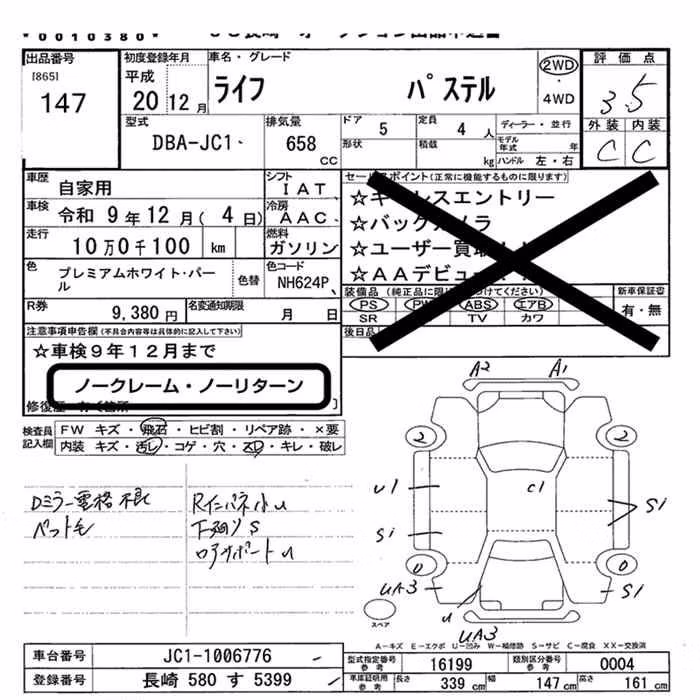 0010380
出品番号
[865]
147
初度登録年月
平成
20 12 月
車名・グレード
ライフ パステル
2WD
・
4WD
評価点
3.5
外装 内装
C C
型式
DBA-JC1
排気量
658
CC
ドア
5
定員
4 人
ディーラー・並行
モデル年式 年
形状
積載
kg
ハンドル 左・右
車歴
自家用
シフト
IAT
車検
令和 9年 12月( 4 日)
冷房
AAC
走行
10万0千100 km
燃料
ガソリン
色
プレミアムホワイト・パール
色替
色コード
NH624P
R券
9,380円
名変通知期限
月 日
セールスポイント(正常に機能するものに限ります)
☆キーレスエントリー
☆バックカメラ
☆ユーザー買取
☆AAデビュー
装備品
PS PW ABS エアB
SR TV カワ
新車保証書
有・無
後日品
注意事項申告欄(不具合内容等は具体的に記入して下さい)
☆車検9年12月まで
ノークレーム・ノーリターン
検査員記入欄
FW キズ・飛石・ヒビ割・リペア跡・×要
内装 キズ・汚レ・コゲ・穴・スレ・キレ・破レ
Dミラー電格不良
ペット毛
下廻りS
A2 A1
2 2
U1 C1 S1
S1
0 0
UA3 S1
U
UA3
スペア
A…キズ E…エクボ U…凹み W…補修跡 S…サビ C…腐食 XX…交換済
車台番号
JC1-1006776
登録番号
長崎 580 す 5399
型式指定番号
参考
16199
類別区分番号
参考
0004
車庫証明用
参考
長さ 339 cm
幅 147 cm
高さ 161 cm